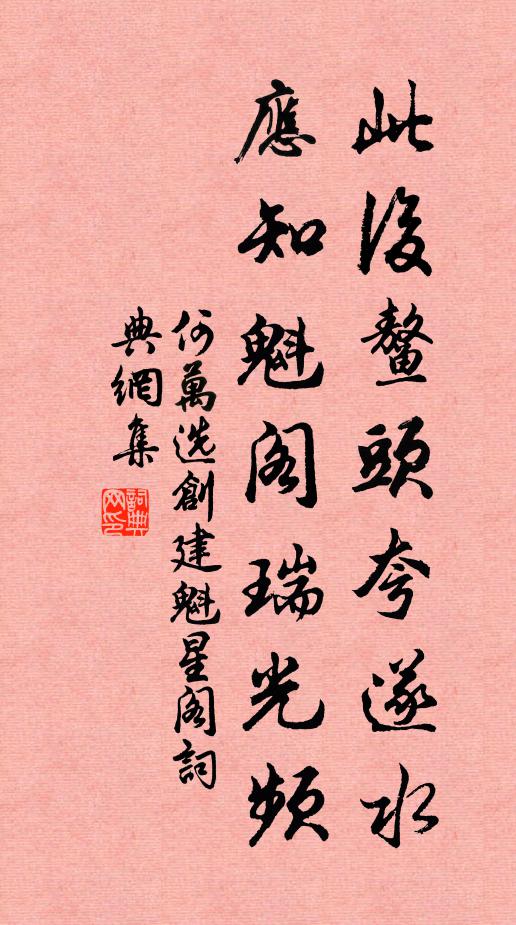 此後鼇頭夸遂水
應知魁閣瑞光頻
何萬选創建魁星阁詞
典網集
詞典网印